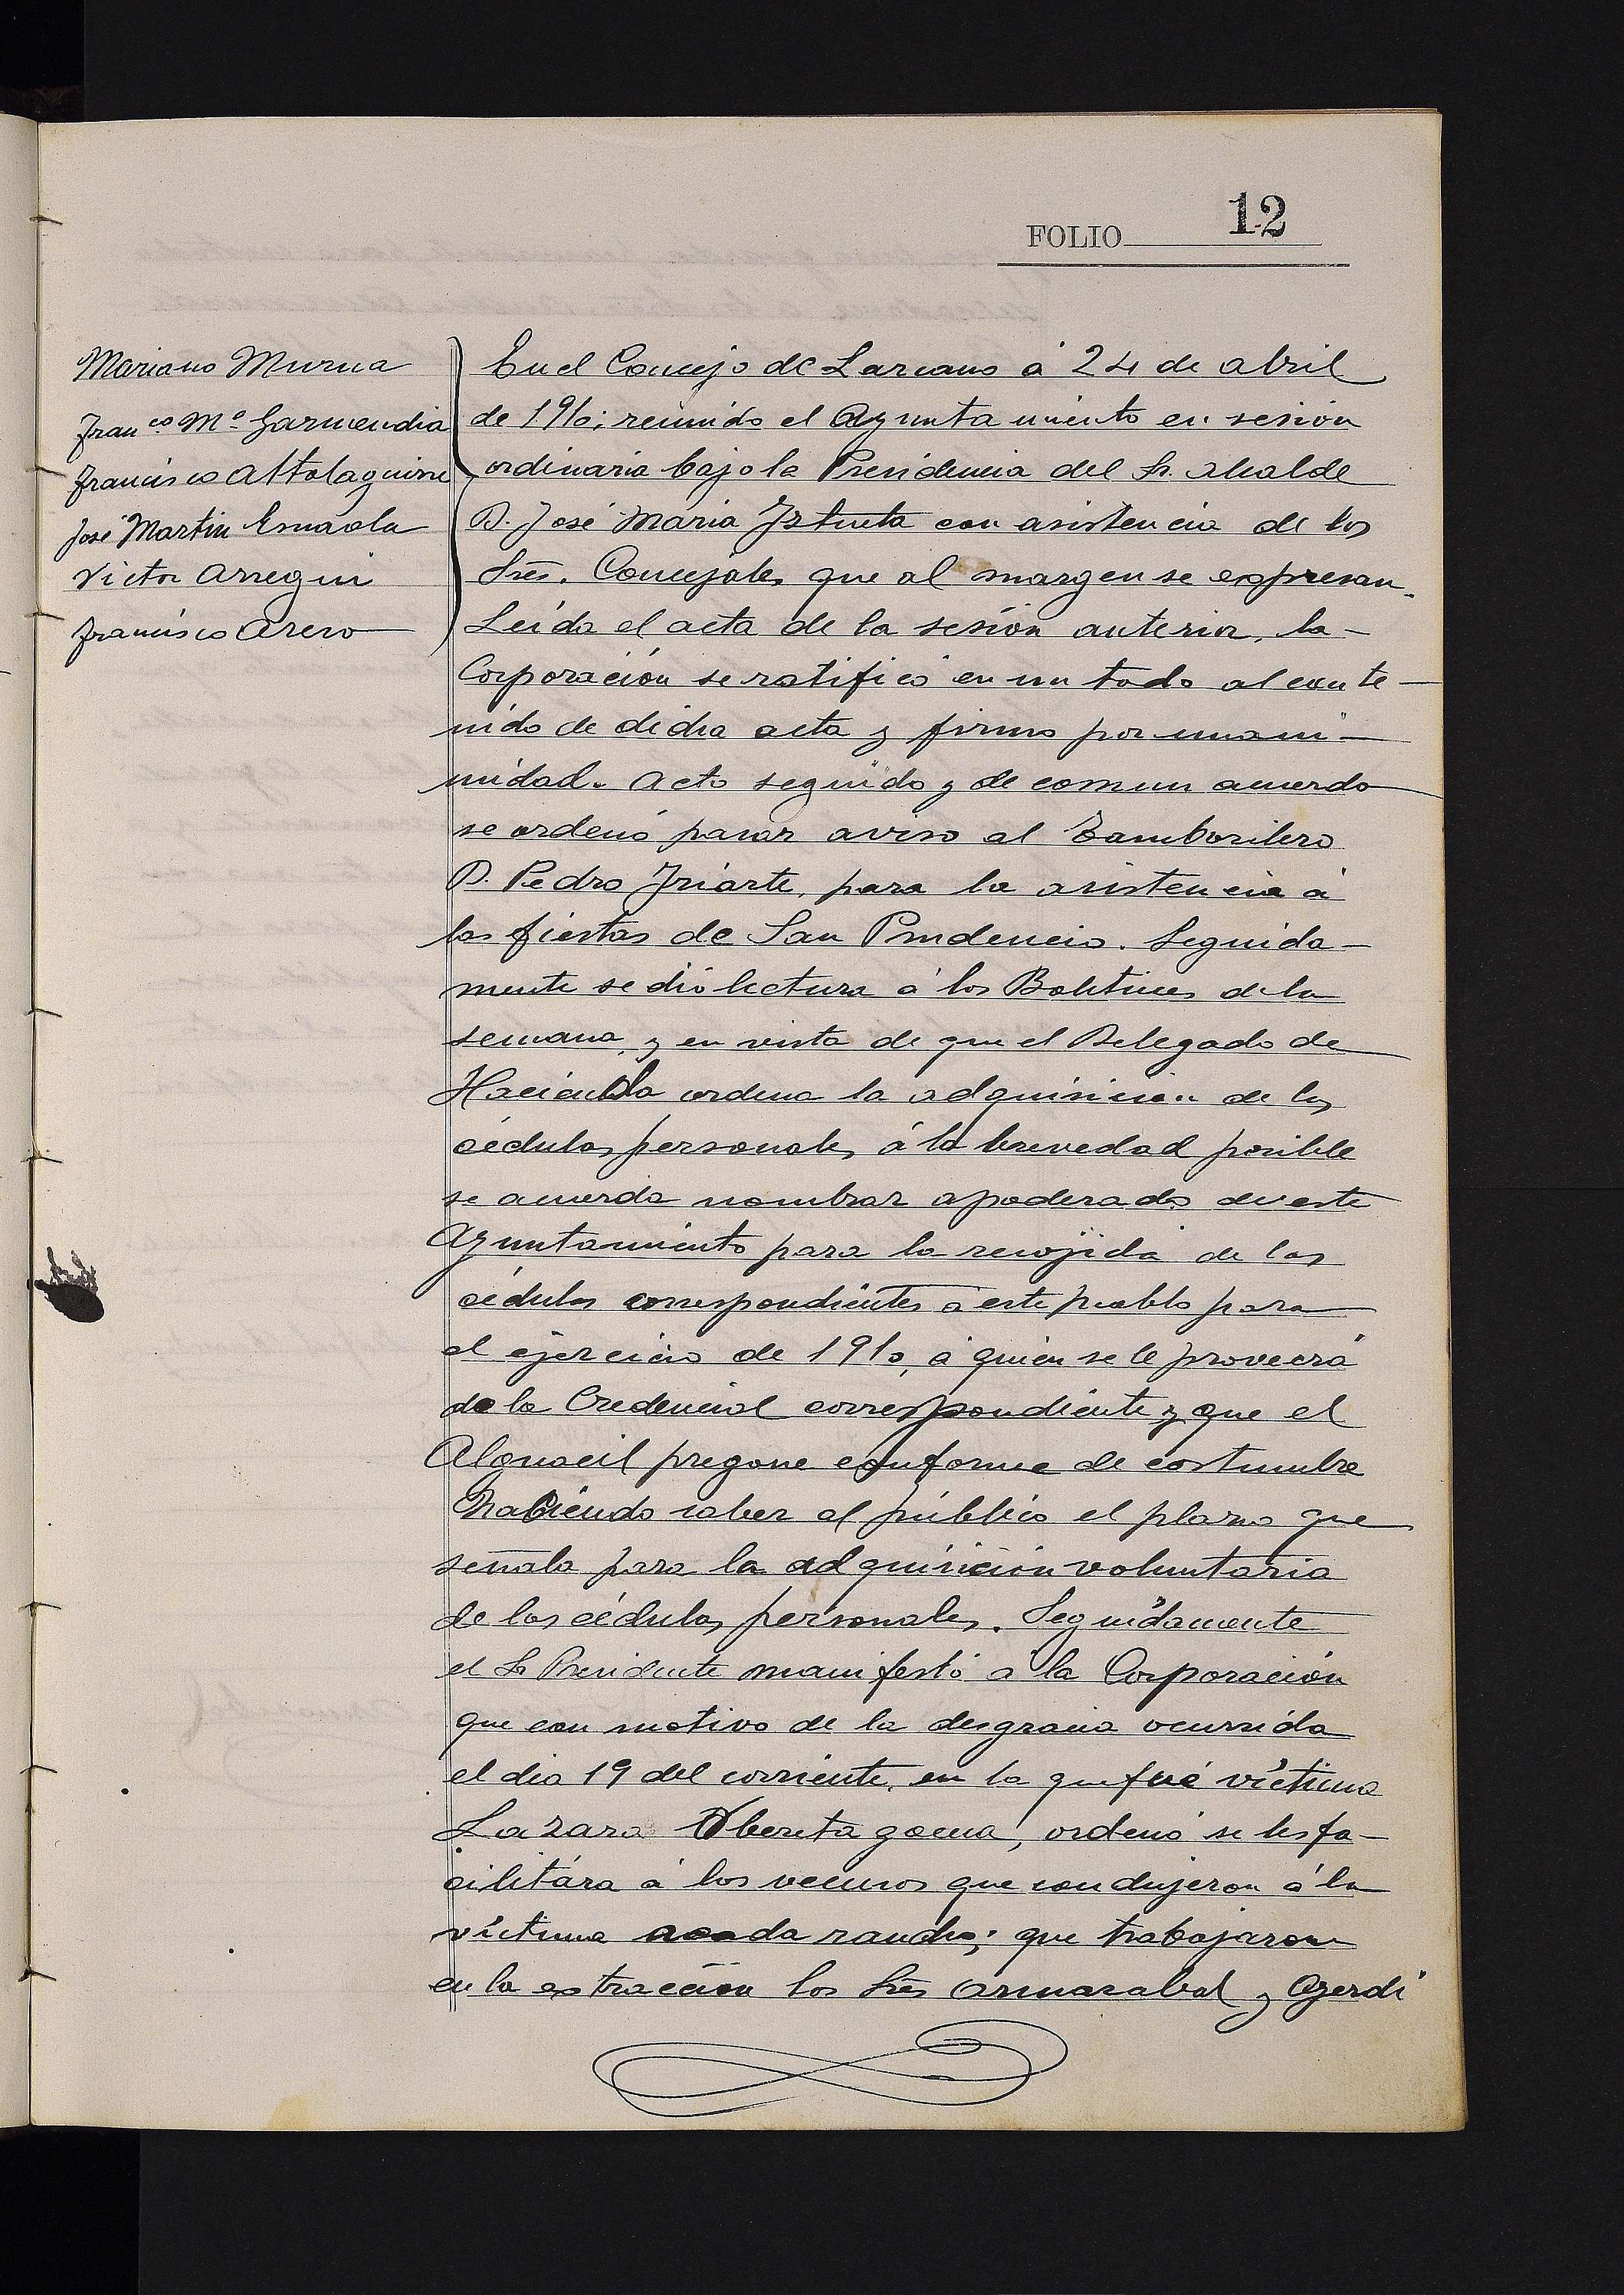 FOLIO 12
Mariano Murua
Fran.co Mª Garmendia
Francisco Altolaguirre
José Martin Esnaola
Victor Arregui
Francisco Asero
En el Concejo de Larcano á 24 de abril
de 1910; reunido el Ayuntamiento en sesión
ordinaria bajo la Presidencia del Sr. alcalde
D. José Maria Iztueta con asistencia de los
Sres. Concejales que al margen se expresan.
Leida el acta de la sesión anterior, la
Corporación se ratificó en un todo al conte-
nido de dicha acta y firmo por unani-
midad. Acto seguido y de comun acuerdo
se ordenó pasar aviso al Tamborilero
D. Pedro Iriarte, para la asistencia á
las fiestas de San Prudencio. Seguida-
mente se dió lectura á los Boletines de la
semana, y en vista de que el Delegado de
Hacienda ordena la adquisicion de las
cédulas personales á la brevedad posible
se acuerda nombrar apoderado de este
Ayuntamiento para la recojida de las
cédulas correspondientes á este pueblo para
el ejercicio de 1910, á quien se le proveerá
de la Credencial correspondiente y que el
Alguacil pregone conforme de costumbre
haciendo saber al público el plazo que
señala para la adquisición voluntaria
de las cédulas personales. Seguidamente
el Sr Presidente manifestó á la Corporación
que con motivo de la desgracia ocurrida
el dia 19 del corriente, en la que fué víctima
Lazara Oberetagoena, ordenó se les fa-
cilitára á los vecinos que condujeron á la
víctima rancho; que trabajaron
en la extracción los Sres Armazabal y Ayerdi